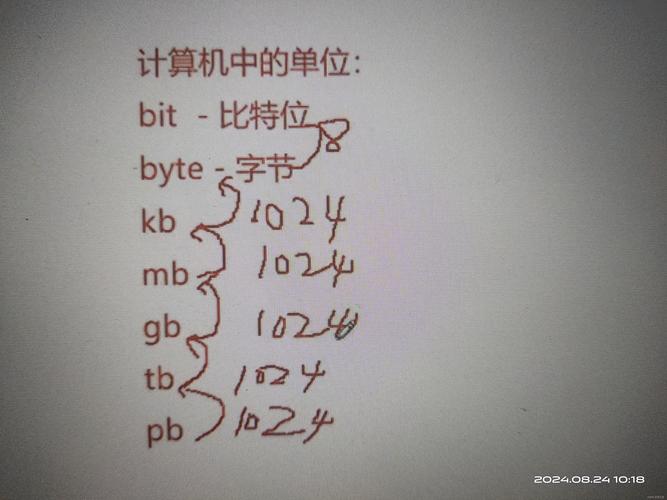 计算机中的单位：
bit - 比特位 8
byte - 字节
kb 1024
mb 1024
gb 1024
tb 1024
pb 1024
2024.08.24 10:18